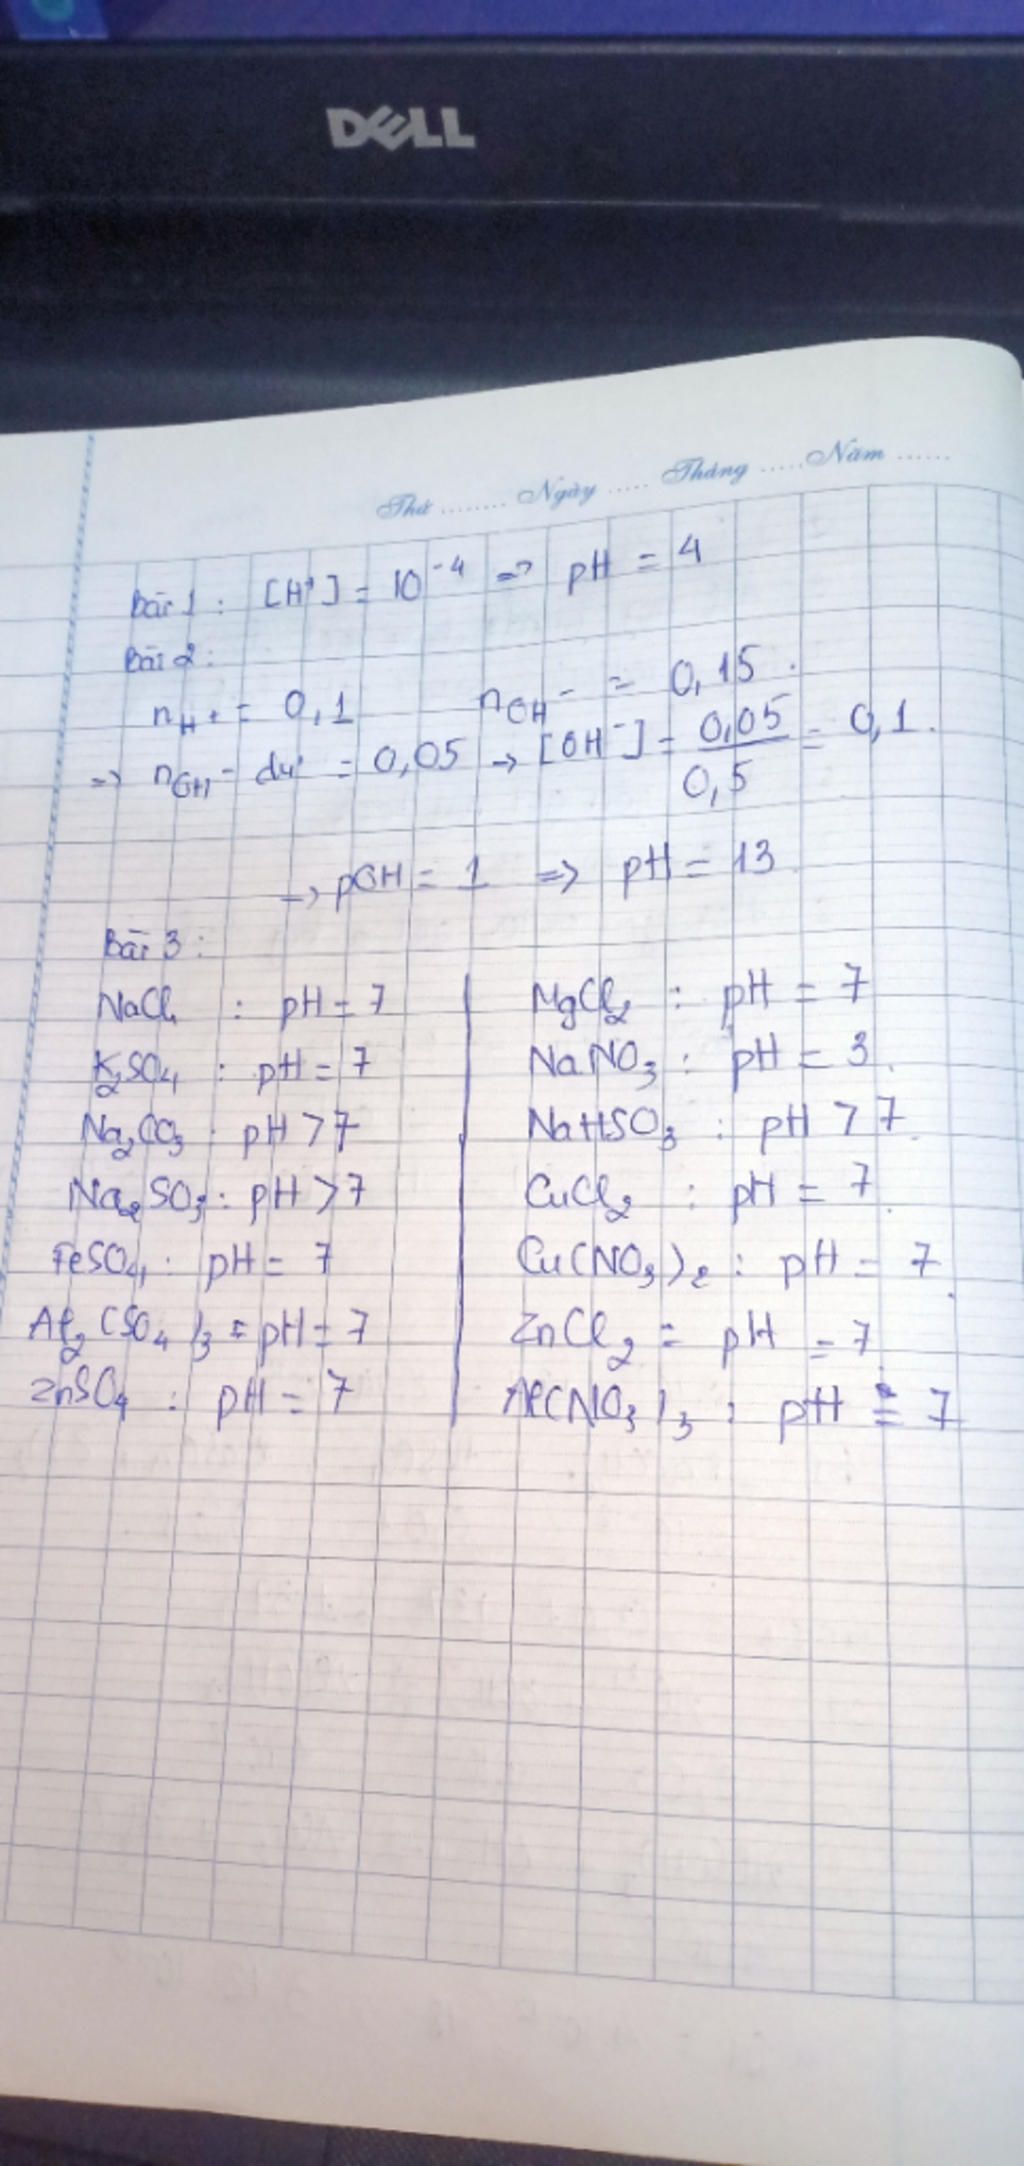 DELL
Thứ ........ Ngày ..... Tháng ..... Năm ......
Bài 1 : [H⁺] = 10⁻⁴ => pH = 4
Bài 2 :
nH⁺ = 0,1 nOH⁻ = 0,15.
=> nOH⁻ dư = 0,05 → [OH⁻] = 0,05/0,5 = 0,1.
→ pOH = 1 => pH = 13
Bài 3 :
NaCl : pH = 7
K₂SO₄ : pH = 7
Na₂CO₃ : pH > 7
Na₂SO₃ : pH > 7
FeSO₄ : pH = 7
Al₂(SO₄)₃ : pH = 7
ZnSO₄ : pH = 7
MgCl₂ : pH = 7
NaNO₃ : pH = 3.
NaHSO₃ : pH > 7.
CuCl₂ : pH = 7.
Cu(NO₃)₂ : pH = 7.
ZnCl₂ = pH = 7.
Al(NO₃)₃ : pH = 7